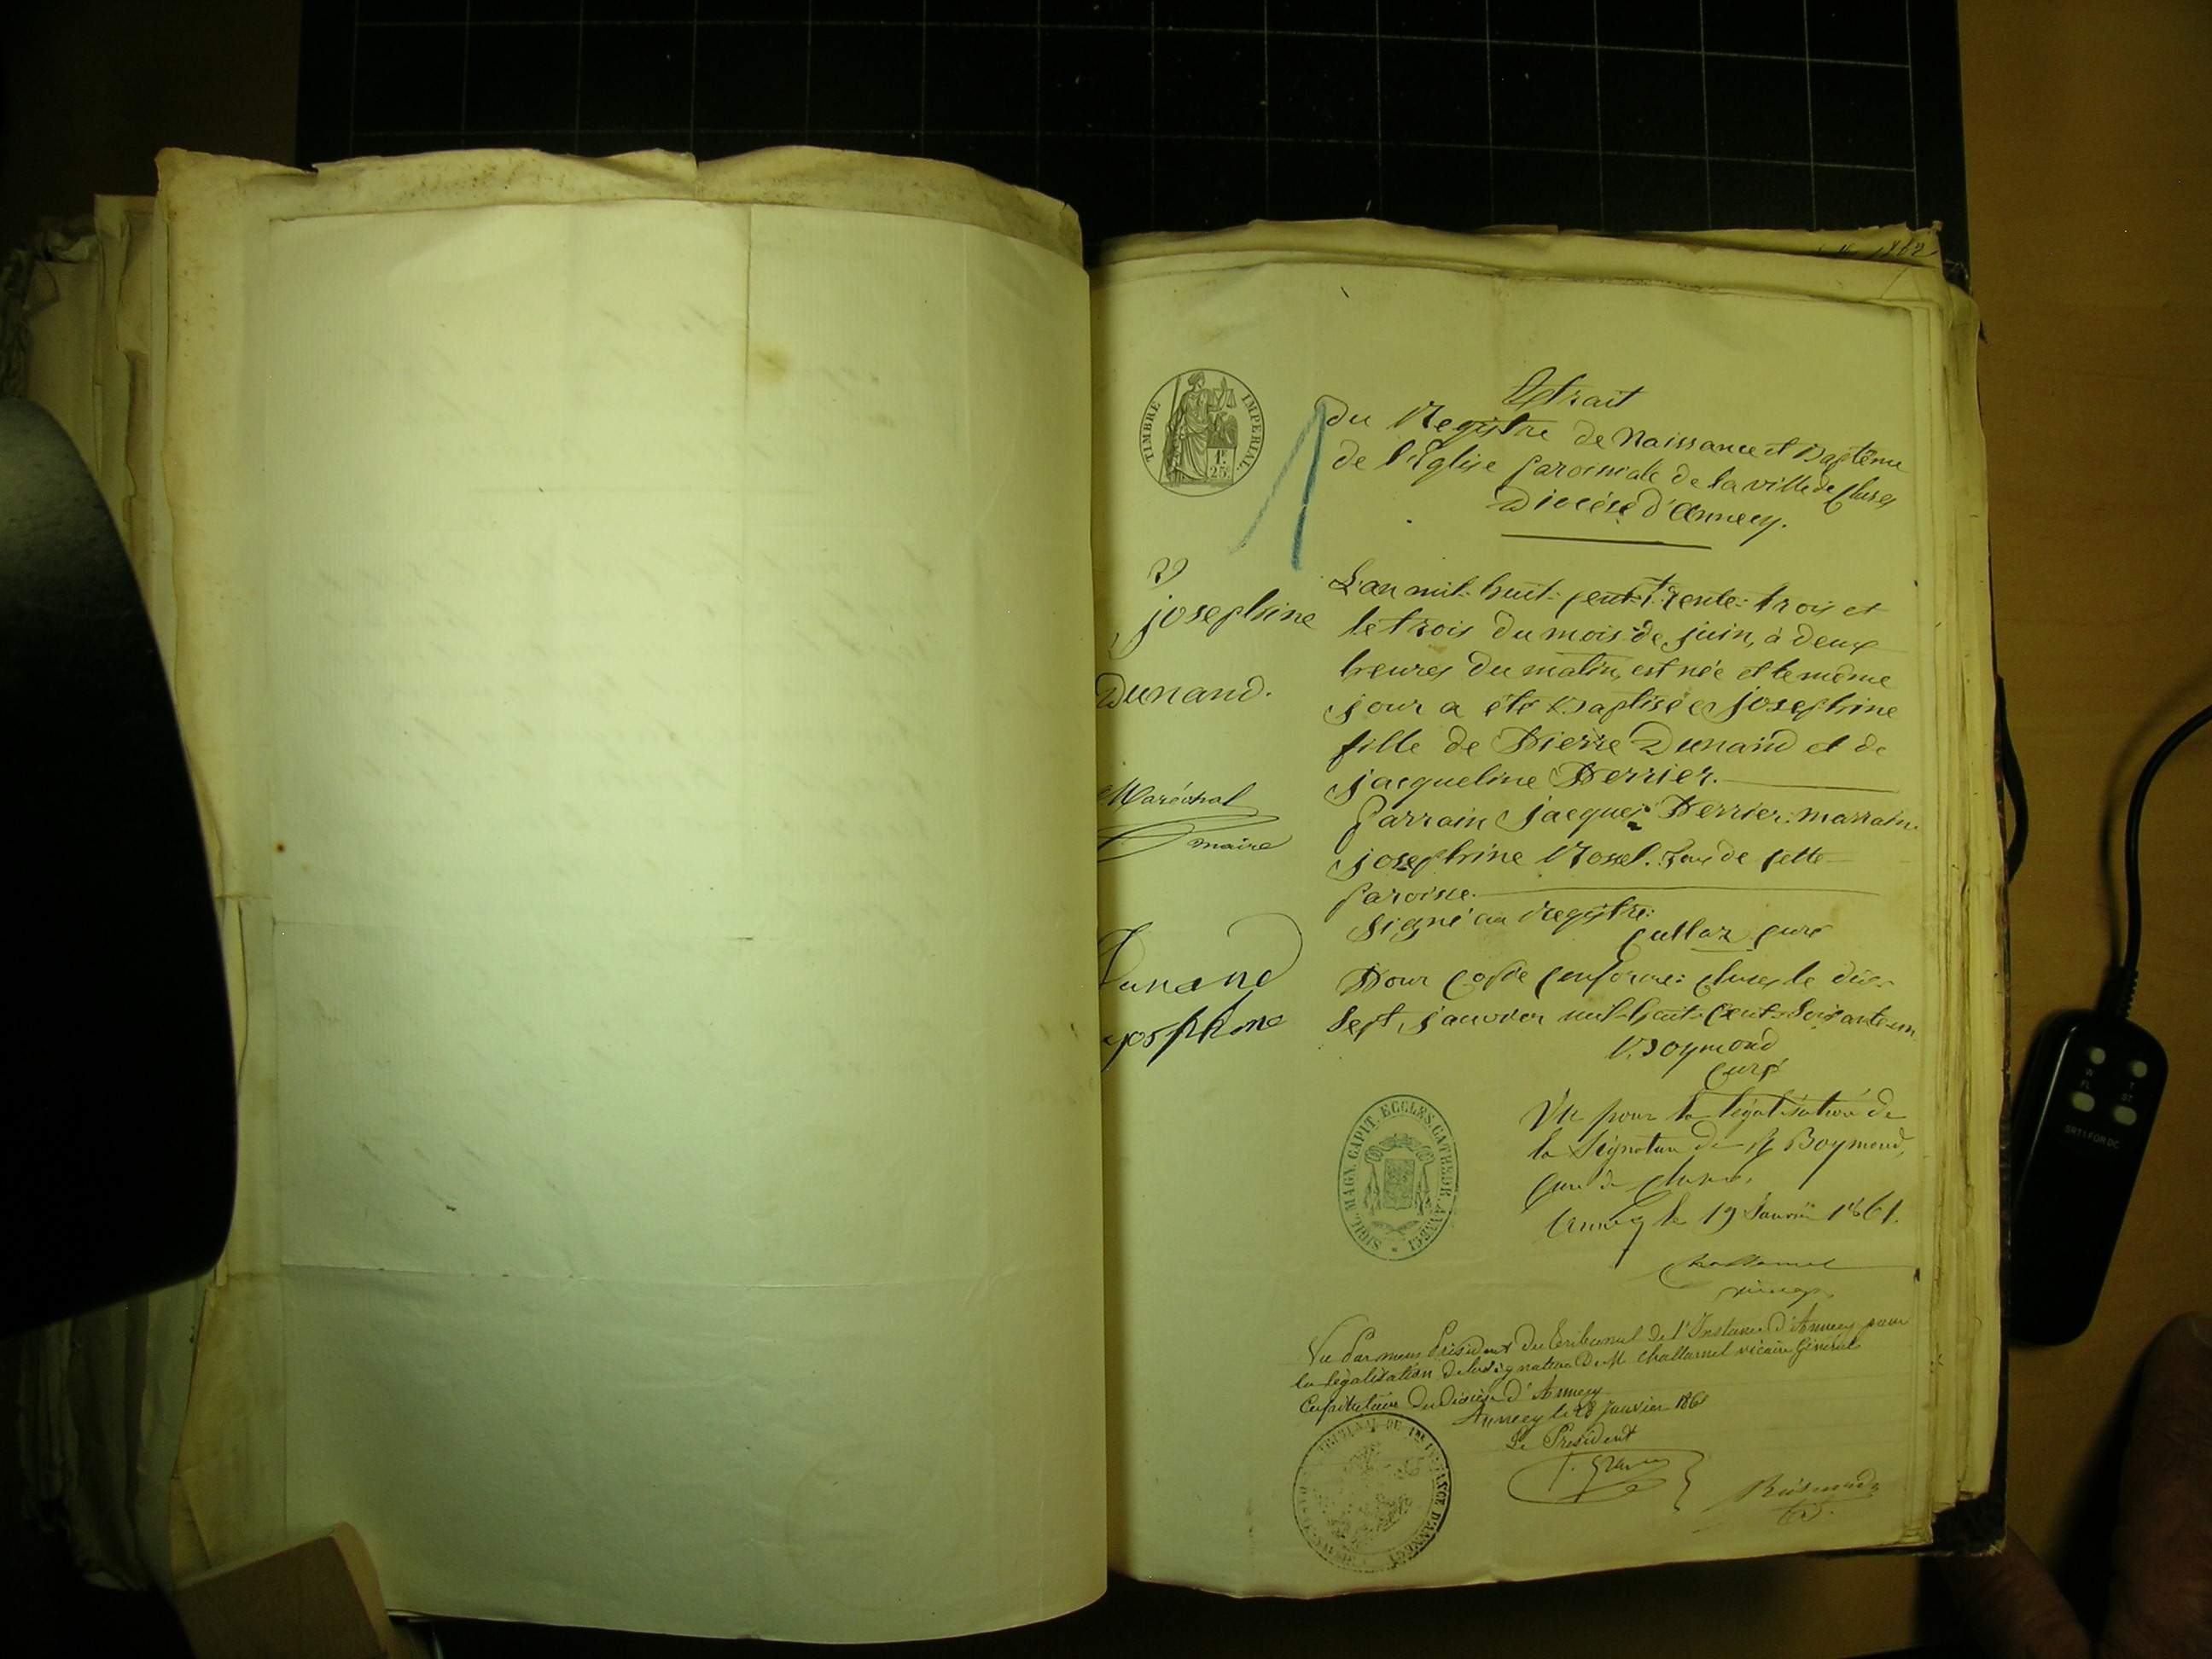 1862
TIMBRE IMPERIAL
1f
25c
Extrait
du Registre de Naissance et Baptême
de l'Eglise paroissiale de la ville de Cluses
Diocèse d'Annecy.
josephine
Dunand.
Maréchal
maire
Dunand
josphine
L'an mil-huit-cent-trente-trois et
le trois du mois de juin, à deux
heures du matin, est née et le même
jour a été baptisée josephine
fille de Pierre Dunand et de
jacqueline Perrier.
Parrain jacques Perrier: marraine
josephine Rossel. Tous de cette
paroisse.
Signé au registre:
Cullaz curé
Pour copie conforme: Cluses le dix-
sept janvier mil-huit-cent-soixante-un
Boymond
curé
Vu pour la légalisation de
la signature de Boymond,
curé de Cluses,
Annecy le 19 Janvier 1861.
Challamel
SIGIL. MAGN. CAPIT. ECCLES. CATHEDR. ANNECI
Vu par nous Président du tribunal de 1e Instance d'Annecy pour
la légalisation de la signature de M Challamel vicaire Général
Capitulaire du diocèse d'Annecy
Annecy le 28 Janvier 1861
Le Président
TRIBUNAL DE 1RE INSTANCE D'ANNECY